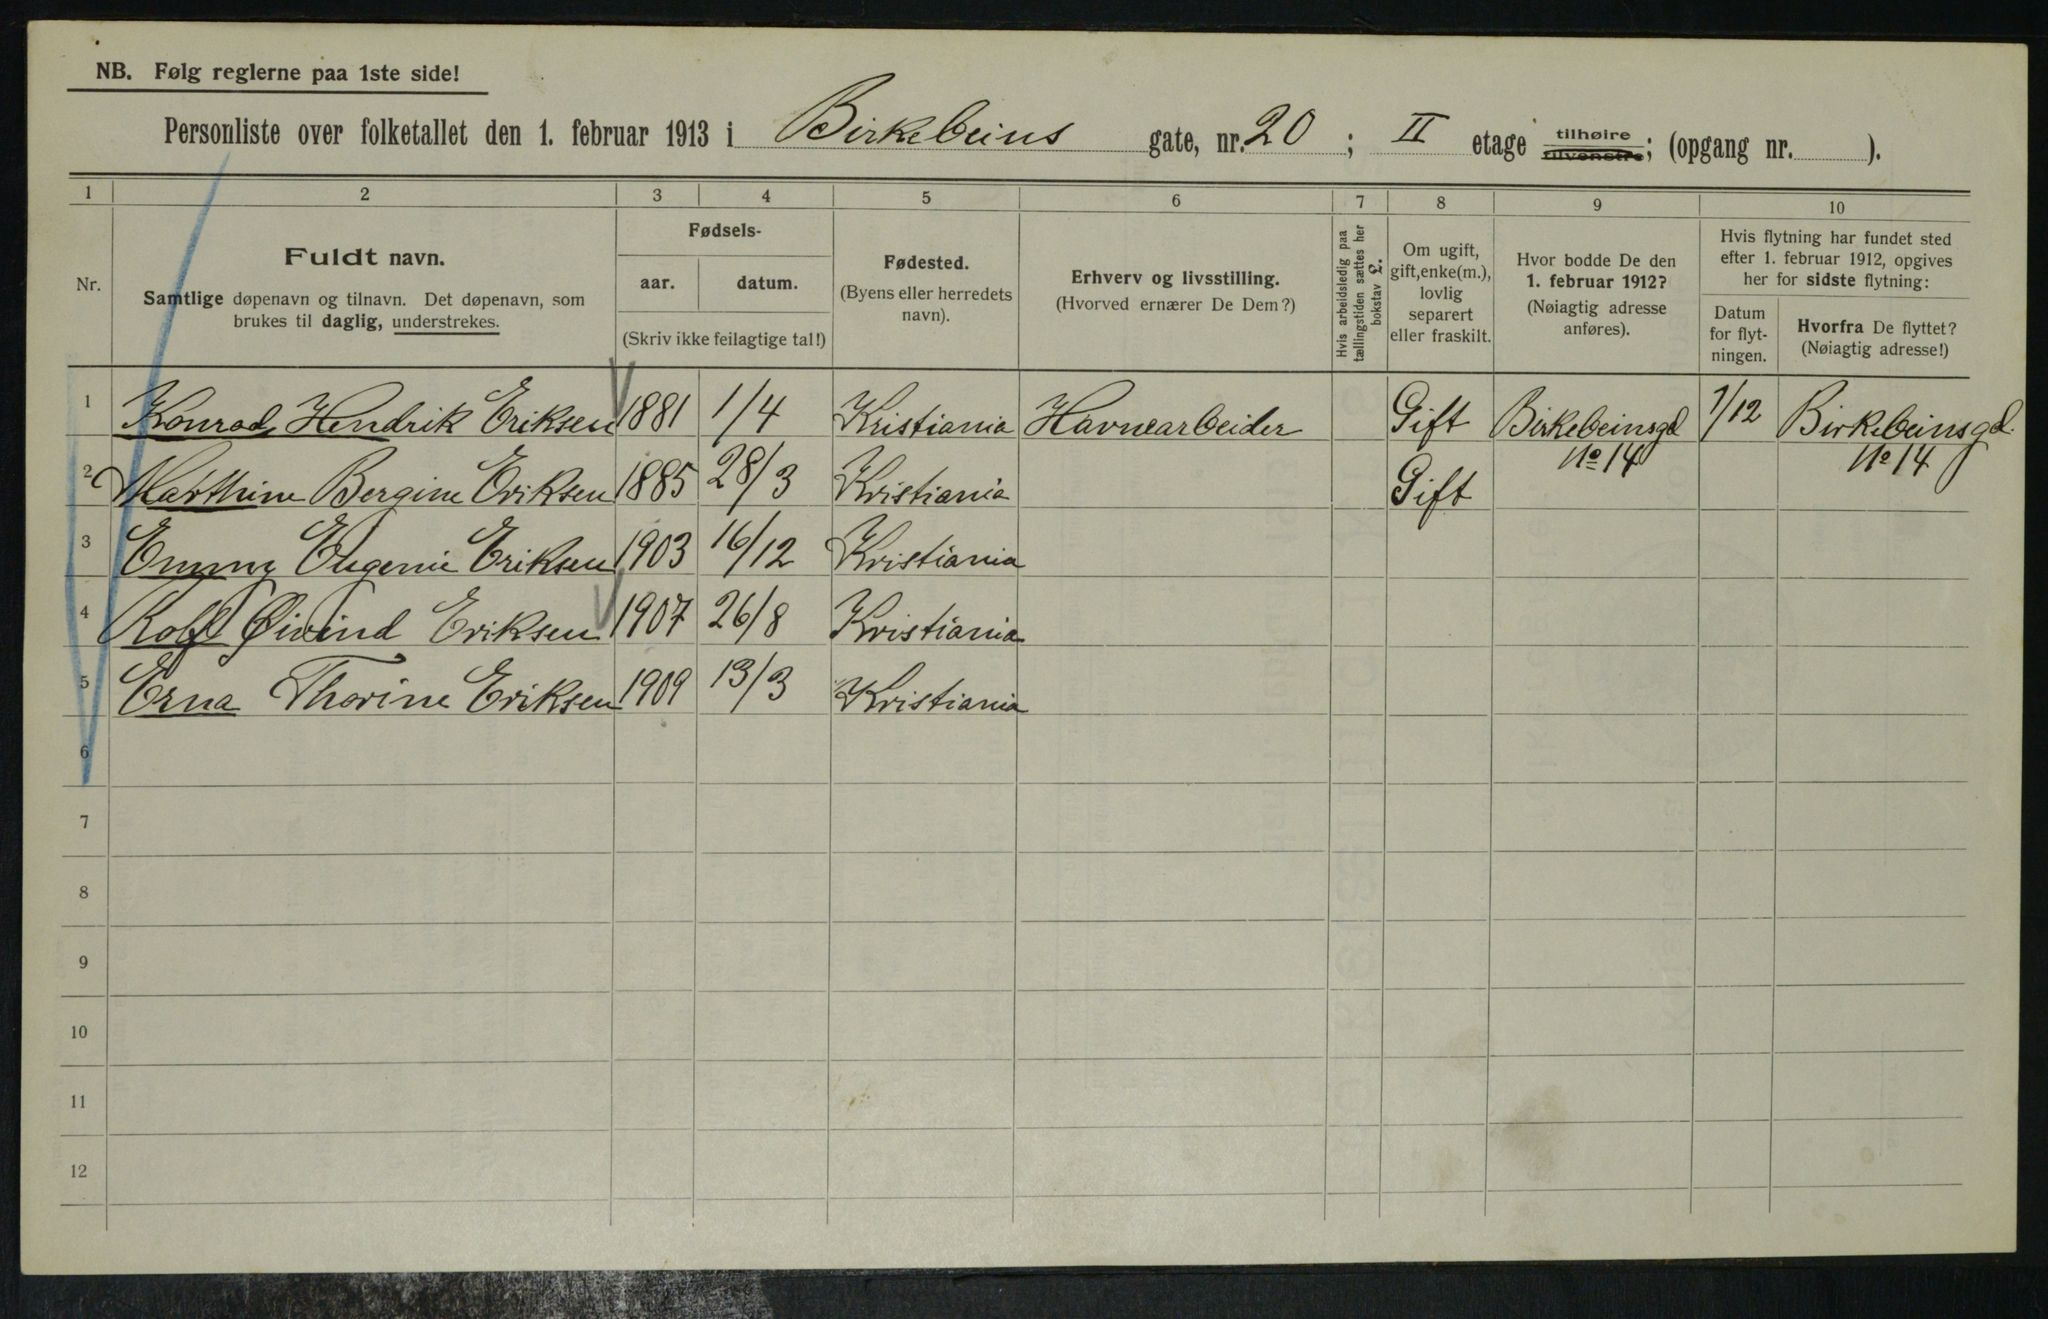 NB. Følg reglerne paa 1ste side!
Personliste over folketallet den 1. februar 1913 i Birkebeins gate, nr. 20; II etage tilhøire tilvenstre; (opgang nr. ).
1 2 3 4 5 6 7 8 9 10
Nr.
Fuldt navn.
Samtlige døpenavn og tilnavn. Det døpenavn, som
brukes til daglig, understrekes.
Fødsels-
aar. datum.
(Skriv ikke feilagtige tal!)
Fødested.
(Byens eller herredets
navn).
Erhverv og livsstilling.
(Hvorved ernærer De Dem?)
Hvis arbeidsledig paa
tællingstiden sættes her
bokstav L.
Om ugift,
gift, enke(m.),
lovlig
separert
eller fraskilt.
Hvor bodde De den
1. februar 1912?
(Nøiagtig adresse
anføres).
Hvis flytning har fundet sted
efter 1. februar 1912, opgives
her for sidste flytning:
Datum
for flyt-
ningen.
Hvorfra De flyttet?
(Nøiagtig adresse!)
1 Konrad Hendrik Eriksen 1881 1/4 Kristiania Havnearbeider Gift Birkebeinsgd No 14 1/12 Birkebeinsgd. No 14
2 Marthine Bergine Eriksen 1885 28/3 Kristiania Gift
3 Emmy Eugenie Eriksen 1903 16/12 Kristiania
4 Rolf Øivind Eriksen 1907 26/8 Kristiania
5 Erna Thorine Eriksen 1909 13/3 Kristiania
6
7
8
9
10
11
12